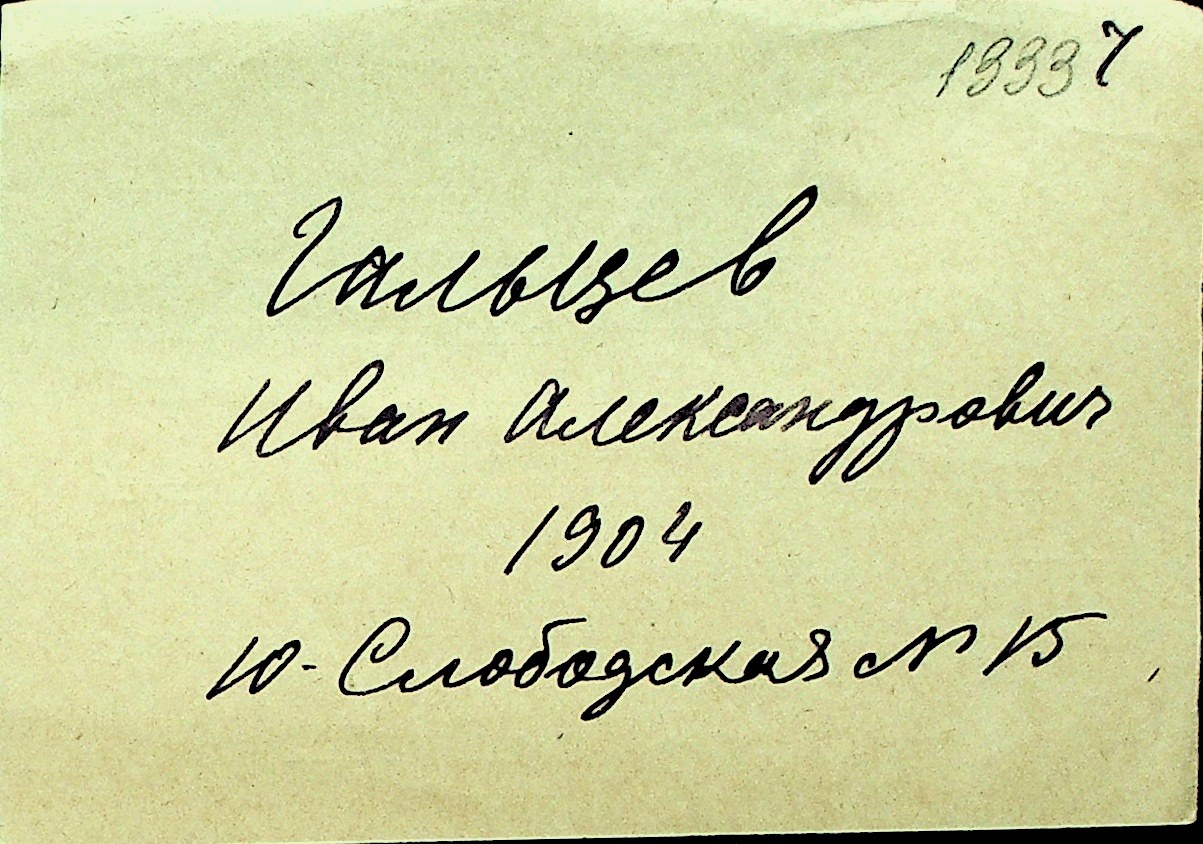 13337
Гальцев
Иван Александрович
1904
Ю-Слободская № 15